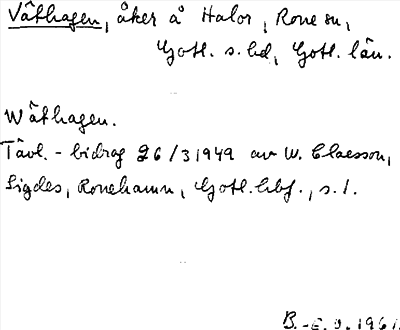 Våthagen, åker å Halor, Rone sn,
Gotl. s. hd, Gotl. län.
Wåthagen.
Tävl.-bidrag 26/3 1949 av W. Claesson,
Sigdes, Ronehamn, Gotl. hbf., s. 1.
B.-E. O. 1961.